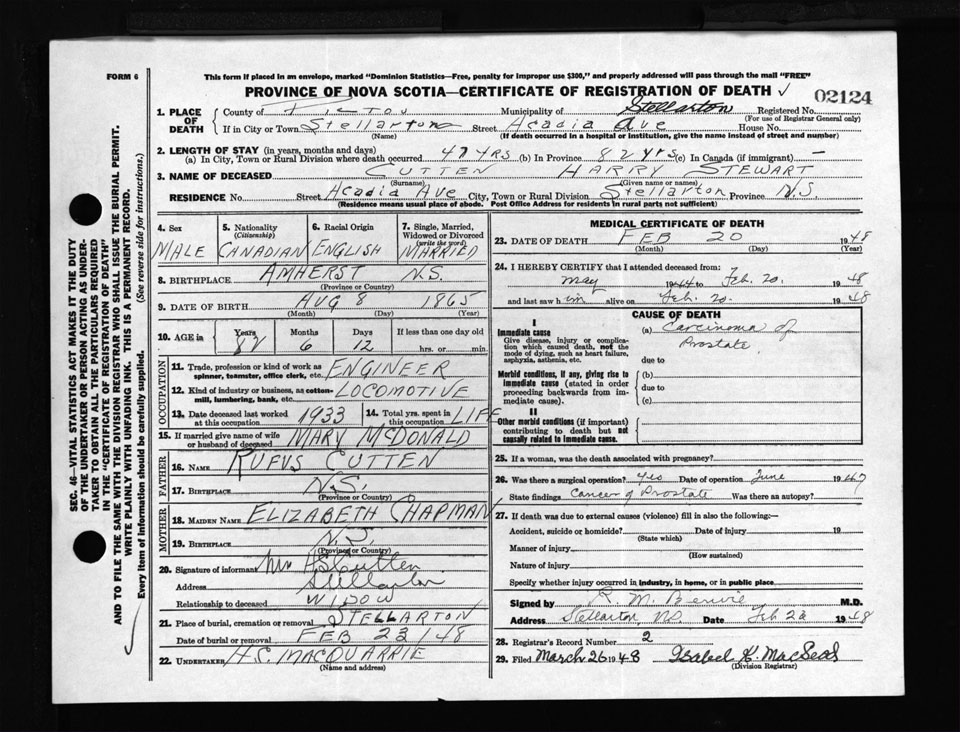 FORM 6
This form if placed in an envelope, marked "Dominion Statistics—Free, penalty for improper use $300," and properly addressed will pass through the mail "FREE"
PROVINCE OF NOVA SCOTIA—CERTIFICATE OF REGISTRATION OF DEATH ✓
02124
1. PLACE OF DEATH
County of Pictou Municipality of Stellarton Registered No.
(For use of Registrar General only)
If in City or Town Stellarton Street Acadia Ave House No.
(Name) (If death occurred in a hospital or institution, give the name instead of street and number)
2. LENGTH OF STAY (in years, months and days)
(a) In City, Town or Rural Division where death occurred 47 yrs (b) In Province 82 yrs (c) In Canada (if immigrant) —
3. NAME OF DECEASED CUTTEN HARRY STEWART
(Surname) (Given name or names)
RESIDENCE No. Street Acadia Ave City, Town or Rural Division Stellarton Province N.S.
(Residence means usual place of abode. Post Office Address for residents in rural parts not sufficient)
SEC. 46—VITAL STATISTICS ACT MAKES IT THE DUTY
OF THE UNDERTAKER OR PERSON ACTING AS UNDER-
TAKER TO OBTAIN ALL THE PARTICULARS REQUIRED
IN THE "CERTIFICATE OF REGISTRATION OF DEATH"
AND TO FILE THE SAME WITH THE DIVISION REGISTRAR WHO SHALL ISSUE THE BURIAL PERMIT.
WRITE PLAINLY WITH UNFADING INK. THIS IS A PERMANENT RECORD.
Every item of information should be carefully supplied. (See reverse side for instructions.)
4. Sex
MALE
5. Nationality
(Citizenship)
CANADIAN
6. Racial Origin
ENGLISH
7. Single, Married, Widowed or Divorced
(write the word)
MARRIED
8. BIRTHPLACE AMHERST N.S.
(Province or Country)
9. DATE OF BIRTH AUG 8 1865
(Month) (Day) (Year)
10. AGE in Years Months Days If less than one day old
82 6 12 hrs. or min.
OCCUPATION
11. Trade, profession or kind of work as spinner, teamster, office clerk, etc. ENGINEER
12. Kind of industry or business, as cotton-mill, lumbering, bank, etc. LOCOMOTIVE
13. Date deceased last worked at this occupation 1933
14. Total yrs. spent in this occupation LIFE
15. If married give name of wife or husband of deceased MARY McDONALD
FATHER
16. NAME RUFUS CUTTEN
17. BIRTHPLACE N.S.
(Province or Country)
MOTHER
18. MAIDEN NAME ELIZABETH CHAPMAN
19. BIRTHPLACE N.S.
(Province or Country)
20. Signature of informant Mrs H S Cutten
Address Stellarton
Relationship to deceased WIDOW
21. Place of burial, cremation or removal STELLARTON
Date of burial or removal FEB 23/48
22. UNDERTAKER H.S. MACQUARRIE
(Name and address)
MEDICAL CERTIFICATE OF DEATH
23. DATE OF DEATH FEB 20 1948
(Month) (Day) (Year)
24. I HEREBY CERTIFY that I attended deceased from:
May to Feb. 20. 1948
and last saw him alive on Feb. 20. 1948
CAUSE OF DEATH
I
Immediate cause
Give disease, injury or complication which caused death, not the mode of dying, such as heart failure, asphyxia, asthenia, etc.
(a) Carcinoma of
Prostate
due to
Morbid conditions, if any, giving rise to immediate cause (stated in order proceeding backwards from immediate cause).
(b)
due to
(c)
II
Other morbid conditions (if important) contributing to death but not causally related to immediate cause.
25. If a woman, was the death associated with pregnancy?
26. Was there surgical operation? yes Date of operation June 19
State findings Cancer of Prostate Was there an autopsy?
27. If death was due to external causes (violence) fill in also the following:—
Accident, suicide or homicide? Date of injury 19
(State which)
Manner of injury
(How sustained)
Nature of injury
Specify whether injury occurred in industry, in home, or in public place
Signed by R. M. M.D.
Address Stellarton, N.S. Date Feb 1948
28. Registrar's Record Number 2
29. Filed March 26 1948 Isabel K. MacLeod
(Division Registrar)